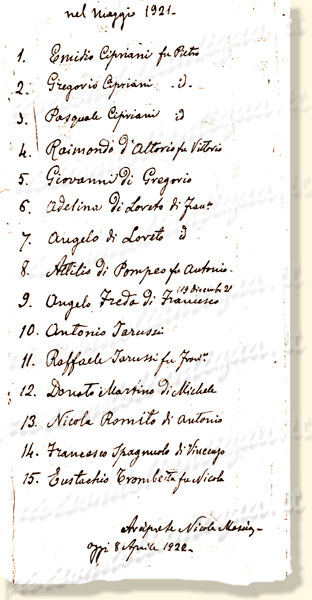 nel Maggio 1921.
1. Emidio Cipriani fu Pietro
2. Gregorio Cipriani id.
3. Pasquale Cipriani id
4. Raimondo D'Altorio fu Vittorio
5. Giovanni di Gregorio
6. Adelina di Loreto di Franco
7. Angelo di Loreto id
8. Attilio di Pompeo fu Antonio.
9. Angelo Freda di Francesco (19 Dicembre 21
10. Antonio Iarussi
11. Raffaele Iarussi fu Franco.
12. Donato Martino di Michele
13. Nicola Romito di Antonio
14. Francesco Spagnuolo di Vincenzo
15. Eustachio Trombetta fu Nicola
Arciprete Nicola
Oggi 8 Aprile 1922.